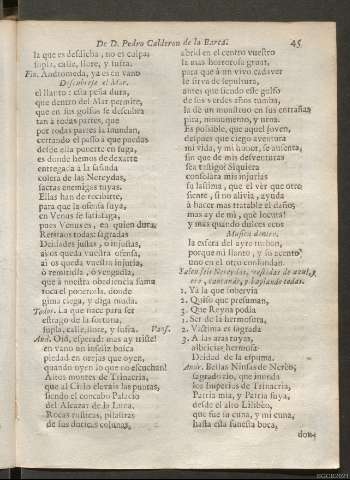 De D. Pedro Calderon de la Barca. 45
la que es desdicha, no es culpa;
supla, calle, llore, y sufra.
Fin. Andromeda, ya es en vano
Descubrese el Mar.
el llanto: esta peña dura,
que dentro del Mar permite,
que en sus golfos se descubra
tan à todas partes, que
por todas partes la inundan,
cerrando el passo à que puedas
desde ella ponerte en fuga,
es donde hemos de dexarte
entregada à la sañuda
colera de las Nereydas,
sacras enemigas tuyas.
Ellas han de recibirte,
para que la ofensa suya,
en Venus se satisfaga,
pues Venus es, en quien dura.
Restaos todas: sagradas
Deidades justas, ò injustas,
ai os queda vuestra ofensa,
ai os queda vuestra injuria,
ò remitidla, ò vengadla,
que à nuestra obediencia suma
toca el ponerosla, donde
gima ciega, y diga muda.
Todos. La que nace para ser
estrago de la fortuna,
supla, calle, llore, y sufra. Vans.
And. Oid, esperad: mas ay triste!
en vano un infeliz busca
piedad en orejas que oyen,
quando oyen lo que no escuchan!
Altos montes de Trinacria,
que al Cielo elevais las puntas,
siendo el concabo Palacio
del Alcazar de la Luna.
Rocas rusticas, pilastras
de sus doricas colunas,
abrid en el centro vuestro
la mas horrorosa gruta,
para que à un vivo cadaver
le sirva de sepultura,
antes que siendo este golfo
de sus verdes añas tumba,
la dè un monstruo en sus entrañas
pira, monumento, y urna.
Es possible, que aquel joven,
despues que ciego aventura
mi vida, y mi honor, se ausenta,
sin que de mis desventuras
sea testigo! Siquiera
consolàra mis injurias
su lastima, que el vèr que otro
siente, si no alivia, ayuda
à hacer mas tratable el daño;
mas ay de mi, què locura!
y mas quando dulces ecos
Musica dentro.
la esfera del ayre turban,
porque mi llanto, y su acento
uno en el otro confundan.
Salen seis Nereydas, vestidas de azul, y
oro, cantando, y baylando todas.
1. Ya la que sobervia
2. Quiso que presuman,
3. Que Reyna podia
1. Ser de la hermosura,
2. Victima es sagrada
3. A las aras tuyas,
albricias hermosa
Deidad de la espuma.
And. Bellas Ninfas de Nerèo,
sagrado rio, que inunda
los Imperios de Trinacria,
Patria mia, y Patria suya,
desde el alto Lilibèo,
que fue su cuna, y mi cuna,
hasta esta funesta boca,
don-